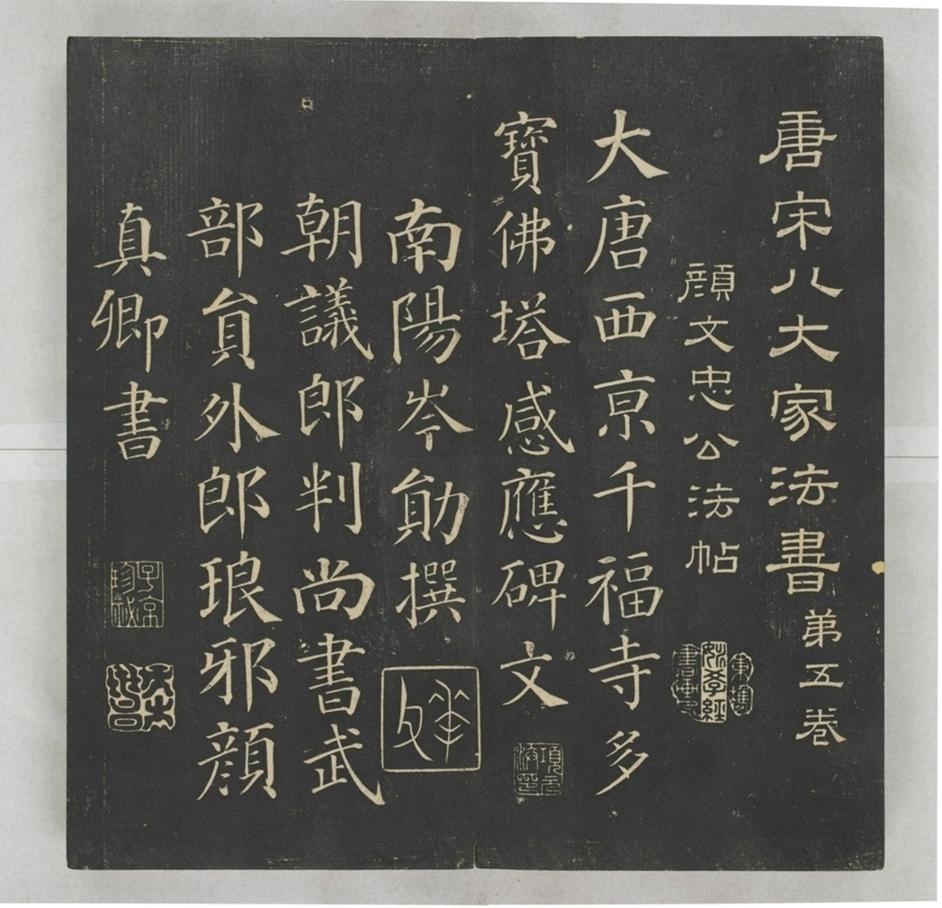 唐宋八大家法書第五卷
顏文忠公法帖
大唐西亰千福寺多
寶佛塔感應碑文
南陽岑勛撰
朝議郎判尚書武
部貟外郎琅邪顏
真卿書